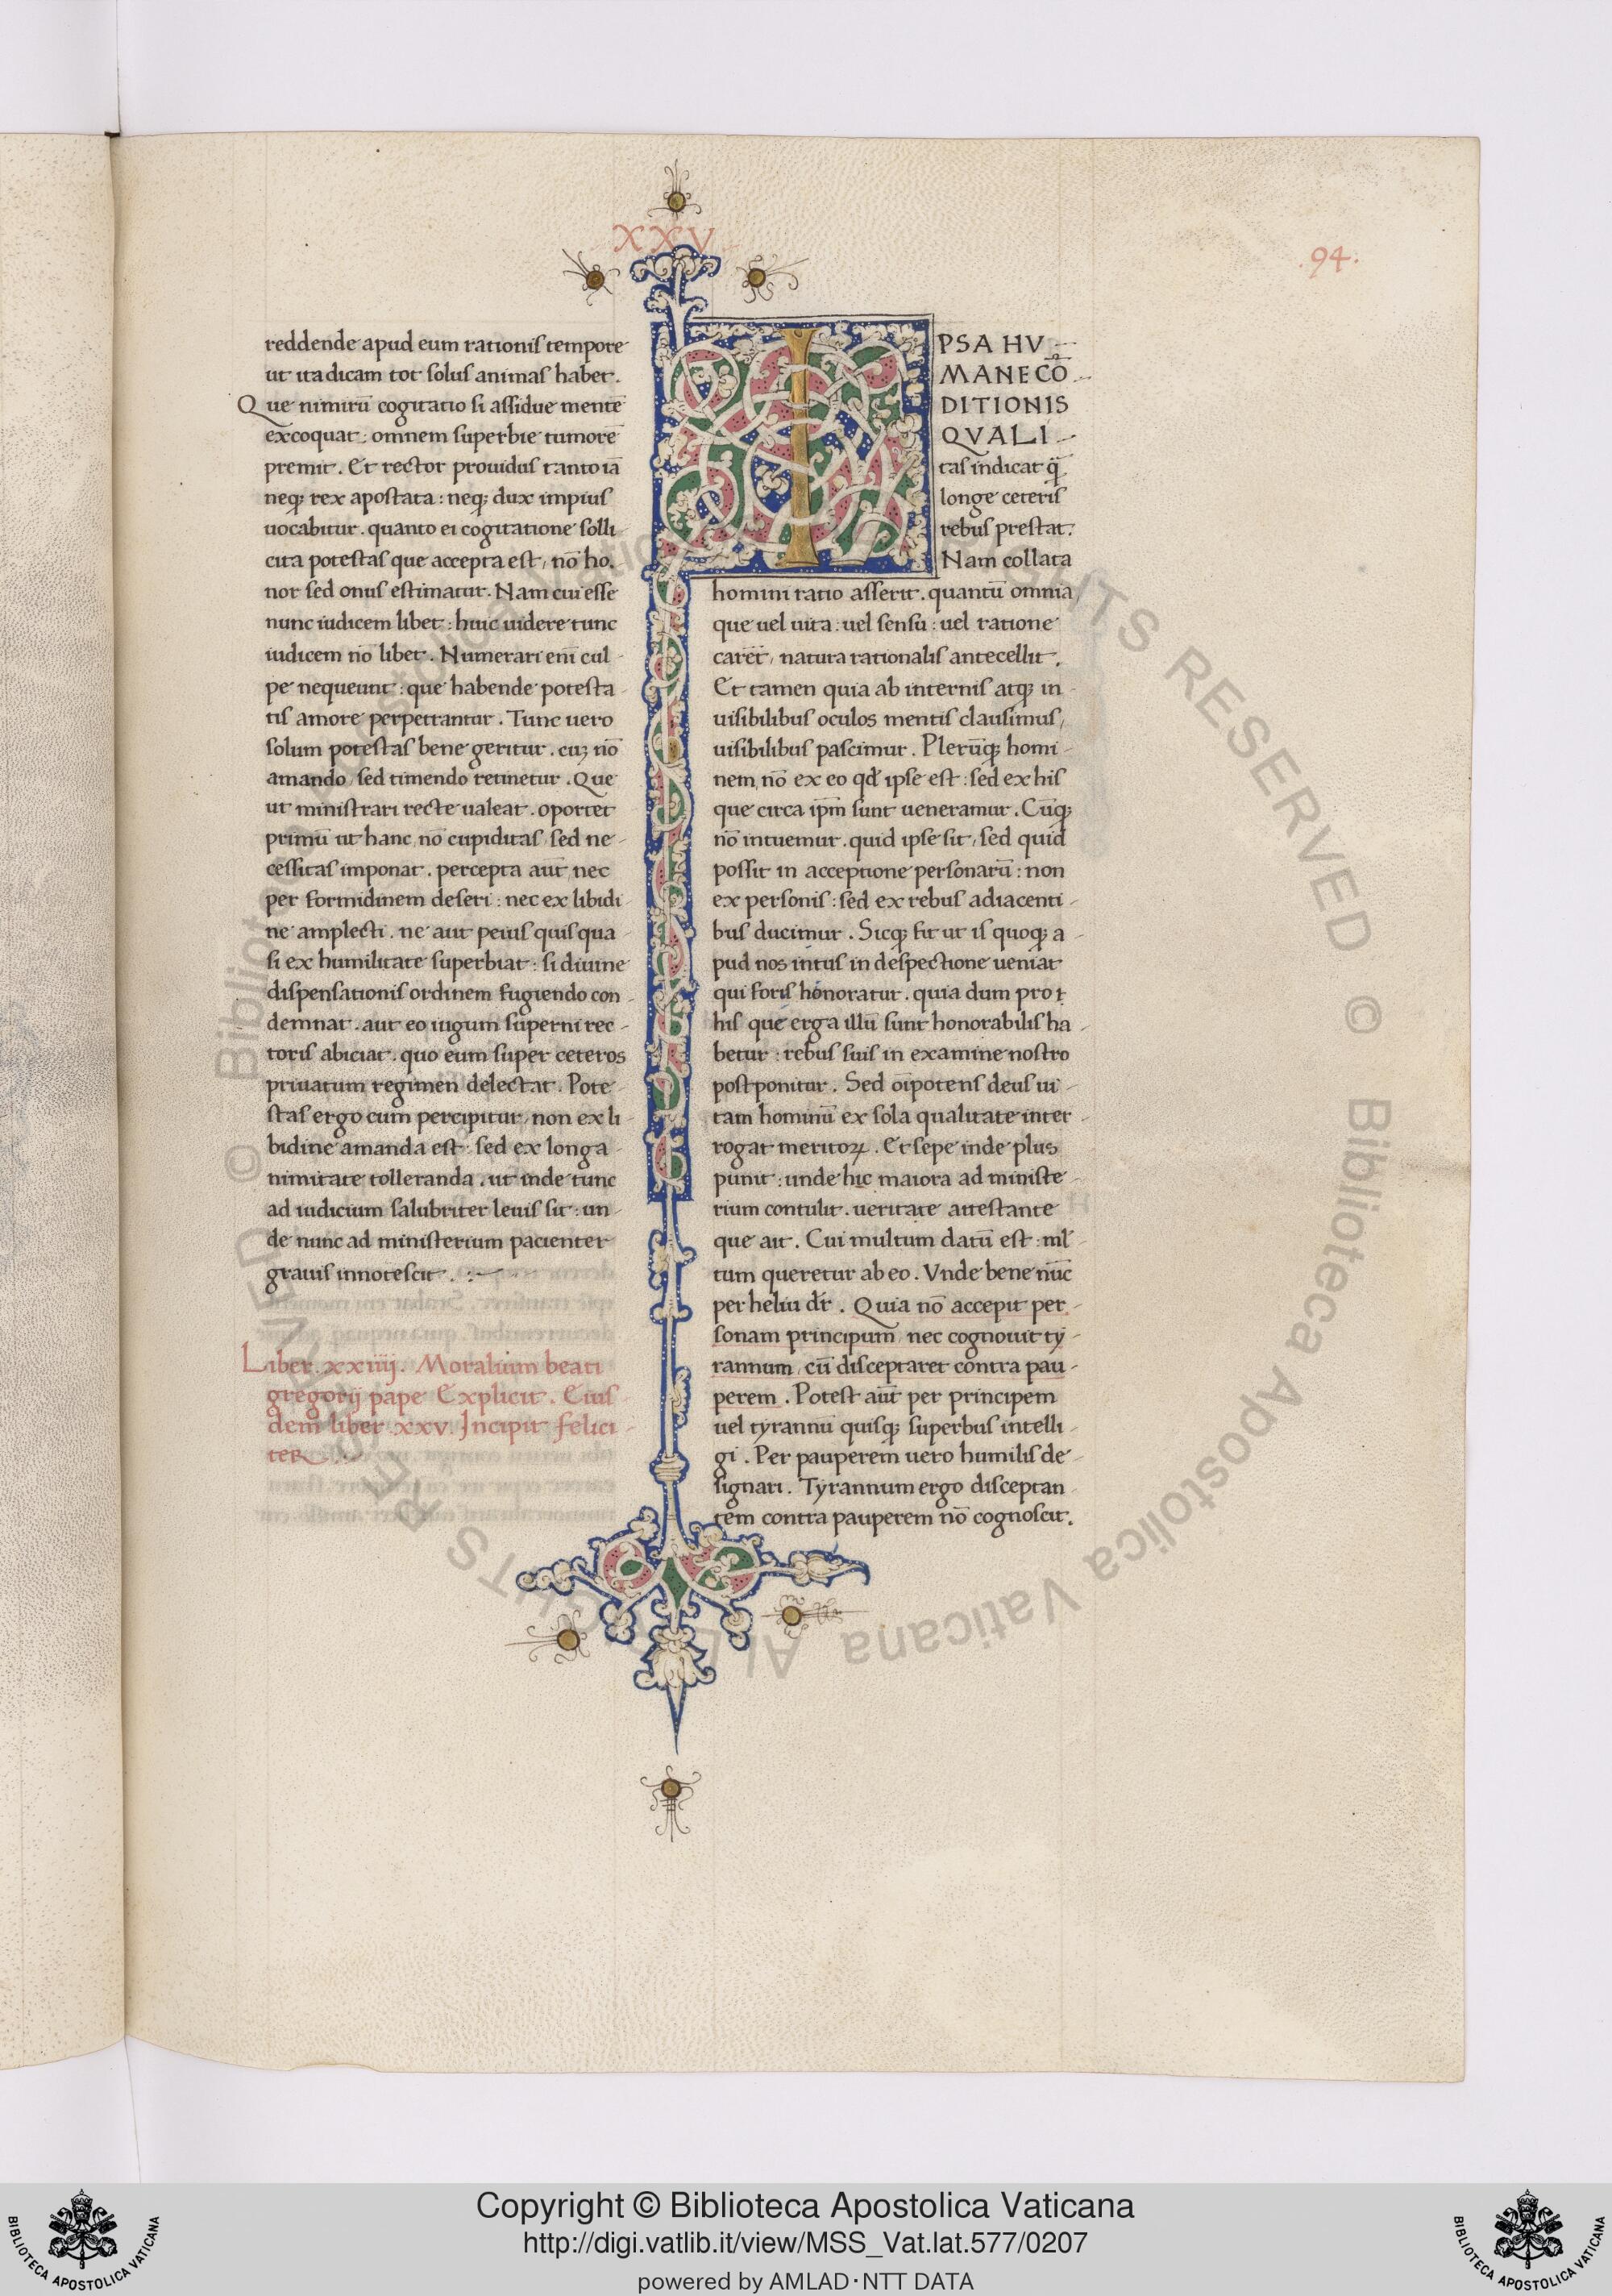 XXV
.94.
reddende apud eum rationis tempore
ut ita dicam tot solus animas habet.
Que nimirū cogitatio si assidue mentē
excoquat: omnem superbie tumorē
premit. Et rector prouidus tanto iā
neq; rex apostata: neq; dux impius
uocabitur. quanto ei cogitatione solli
cita potestas que accepta est, nō ho.
nor sed onus estimatur. Nam cui esse
nunc iudicem libet: huic uidere tunc
iudicem nō libet. Numerari eni cul-
pe nequeunt: que habende potesta-
tis amore perpetrantur. Tunc uero
solum potestas bene geritur. cuz nō
amando, sed timendo retinetur. Que
ut ministrari recte ualeat. oportet
primū ut hanc, nō cupiditas, sed ne-
cessitas imponat. percepta aūt, nec
per formidinem deseri: nec ex libidi-
ne amplecti. ne aut peius quis qua-
si ex humilitate superbiat: si diuine
dispensationis ordinem fugiendo con-
demnat. aut eo iugum superni rec-
toris abiciat. quo eum super ceteros
priuatum regimen delectat. Pote-
stas ergo cum percipitur, non ex li-
bidine amanda est: sed ex longa-
nimitate tolleranda. ut inde tunc
ad iudicium salubriter leuis sit: un-
de nunc ad ministerium pacienter
grauis innotescit. :~
Liber. xxiiij. Moralium beati
gregorij pape Explicit. Eius-
dem liber. xxv. Incipit felici-
teR
I
PSA HV-
MANE CŌ-
DITIONIS
QVALI-
tas indicat q̄
longe ceteris
rebus prestat.
Nam collata
homini ratio asserit. quantū omnia,
que uel uita: uel sensu: uel ratione
caret, natura rationalis antecellit.
Et tamen quia ab internis atq; in-
uisibilibus oculos mentis clausimus,
uisibilibus pascimur. Plerūq; homi-
nem, nō ex eo qd ipse est: sed ex his
que circa ip̄m sunt ueneramur. Cūq;
nō intuemur. quid ipse sit, sed quid
possit in acceptione personarū: non
ex personis: sed ex rebus adiacenti-
bus ducimur. Sicq; fit ut is quoq; a-
pud nos intus in despectione ueniat
qui foris honoratur. quia dum pro i
his que erga illū sunt honorabilis ha-
betur: rebus suis in examine nostro
postponitur. Sed oīpotens deus ui-
tam hominū ex sola qualitate inter-
rogat meritoꝝ. Et sepe inde plus
punit: unde hic maiora ad ministe-
rium contulit. ueritate attestante
que ait. Cui multum datū est: ml-
tum queretur ab eo. Vnde bene nūc
per heliu dr̄. Quia nō accepit per-
sonam principum, nec cognouit ty-
rannum, cū disceptaret contra pau-
perem. Potest aūt per principem
uel tyrannū quisq; superbus intelli-
gi. Per pauperem uero humilis de-
signari. Tyrannum ergo disceptan
tem contra pauperem nō cognoscit.
© Biblioteca Apostolica Vaticana ALL RIGHTS RESERVED
Copyright © Biblioteca Apostolica Vaticana
http://digi.vatlib.it/view/MSS_Vat.lat.577/0207
powered by AMLAD・NTT DATA
BIBLIOTECA APOSTOLICA VATICANA
BIBLIOTECA APOSTOLICA VATICANA